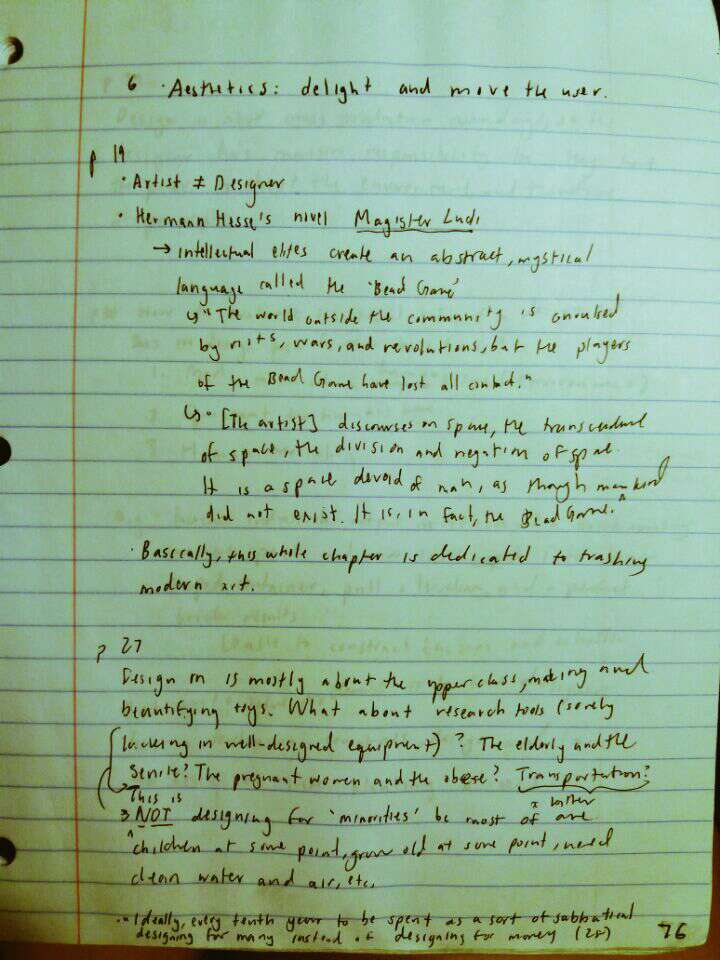 6 • Aesthetics: delight and move the user.
p 19
• Artist ≠ Designer
• Hermann Hesse's novel Magister Ludi
→ intellectual elites create an abstract, mystical
language called the 'Bead Game'
↳ "The world outside the community is
by riots, wars, and revolutions, but the players
of the Bead Game have lost all contact."
↳ "[The artist] discourses on space, the transcendence
of space, the division and negation of space.
It is a space devoid of man, as though mankind
did not exist. It is, in fact, the Bead Game."
• Basically, this whole chapter is dedicated to trashing
modern art.
p 27
Design is mostly about the upper class, making and
beautifying toys. What about research tools (sorely
lacking in well-designed equipment)? The elderly and the
senile? The pregnant women and the obese? Transportation?
This is
NOT designing for 'minorities' bc most of us are
children at some point, grow old at some point, need
clean water and air, etc.
• "Ideally, every tenth year to be spent as a sort of sabbatical
designing for many instead of designing for money (28)
76